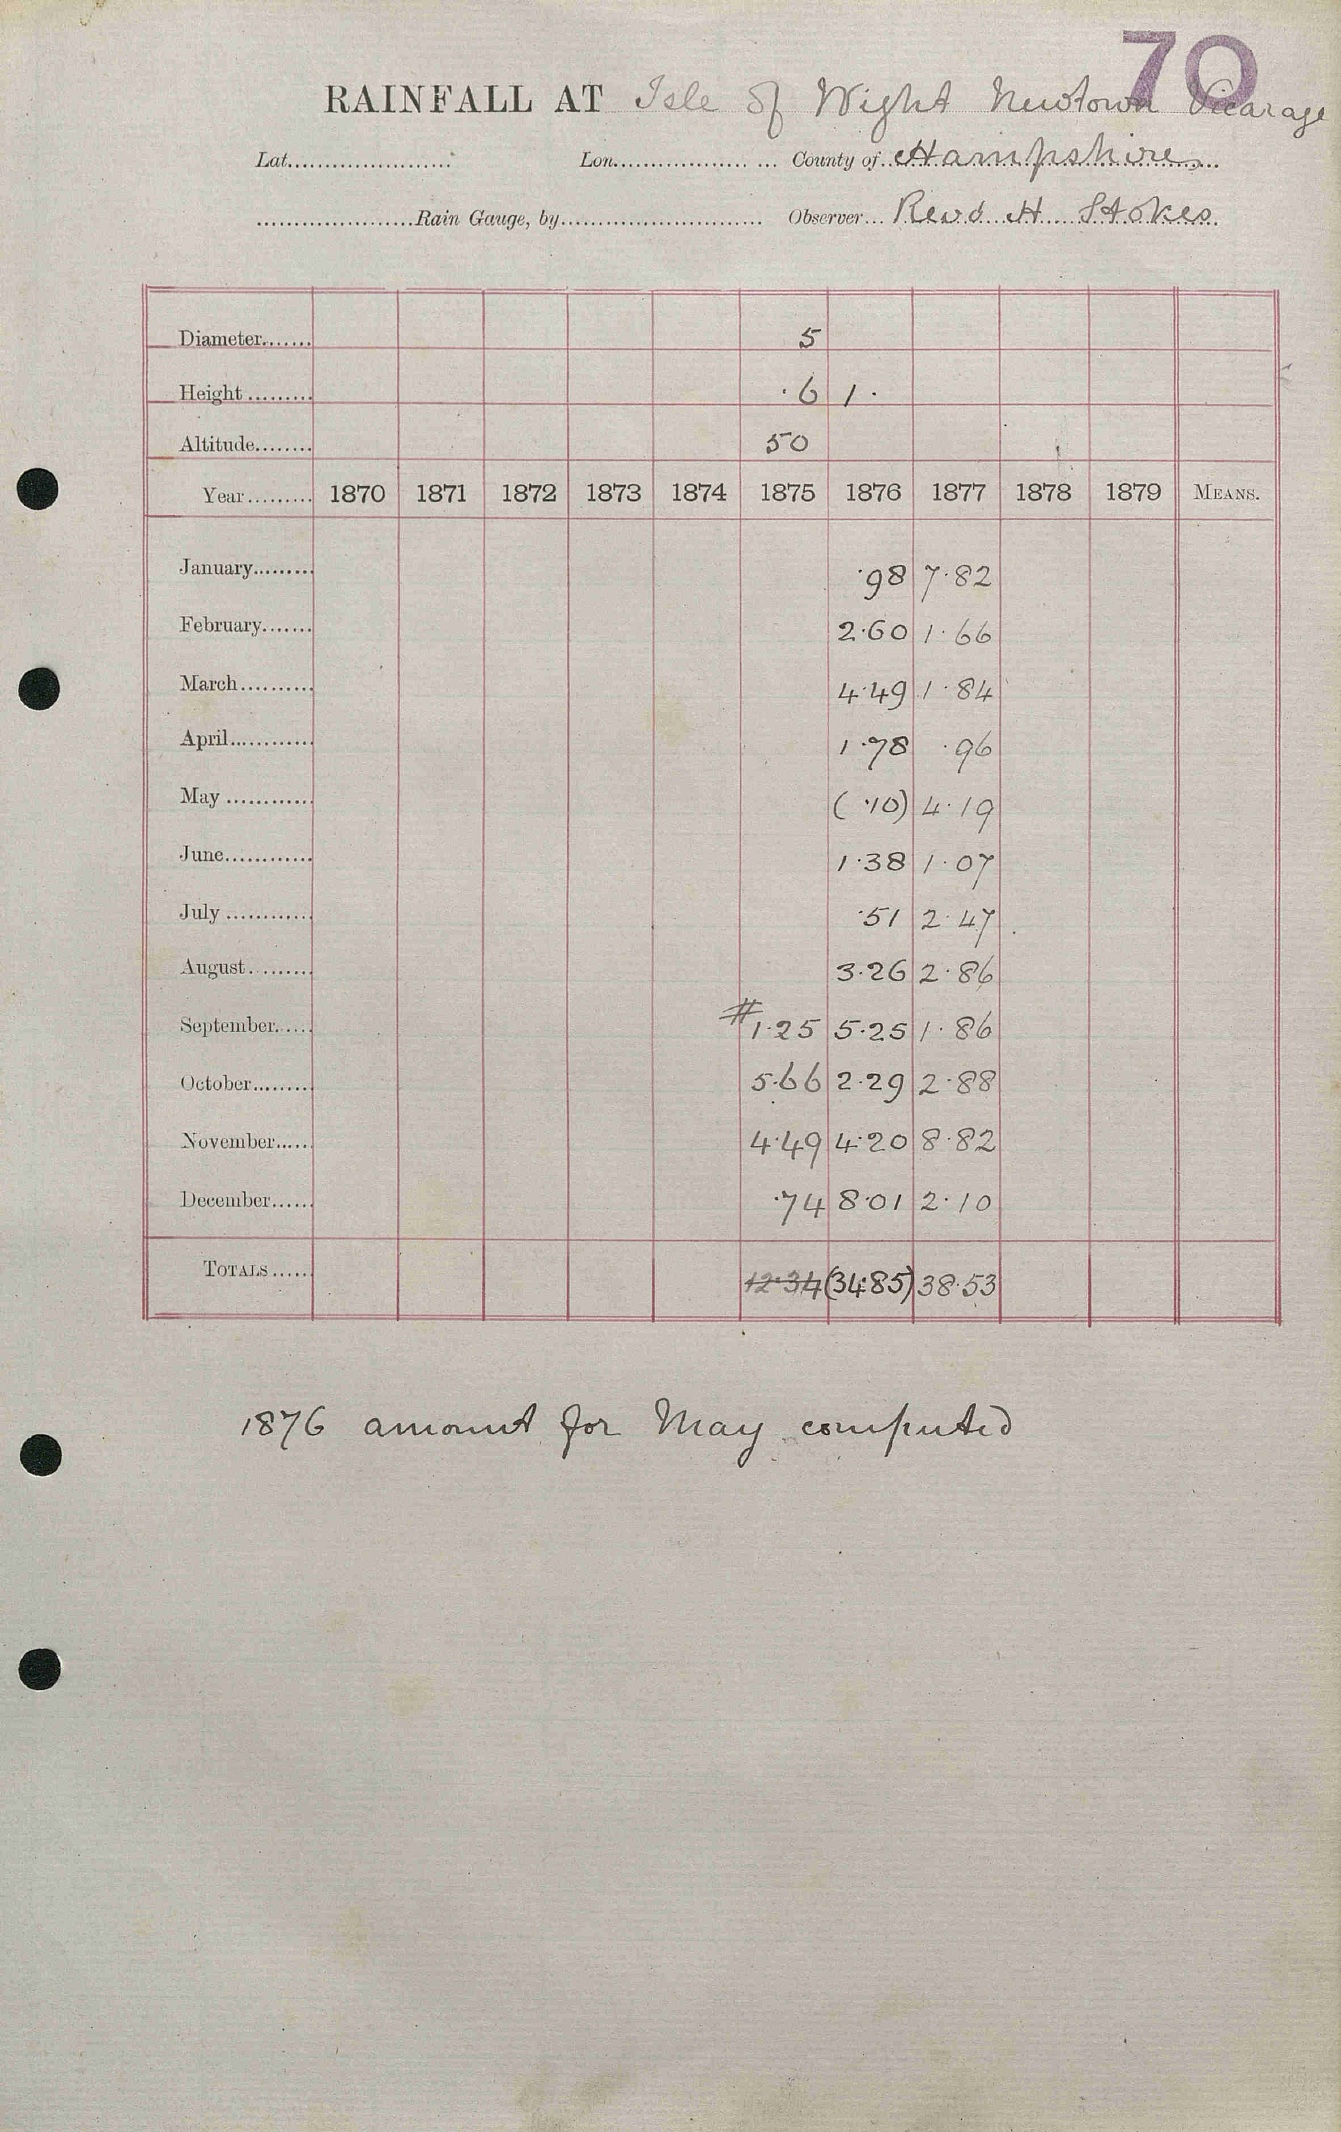 70
RAINFALL AT Isle of Wight Newtown Vicarage
Lat. Lon. County of Hampshire
Rain Gauge, by Observer Revd H Stokes
Diameter 5
Height ·6 1·
Altitude 50
Year 1870 1871 1872 1873 1874 1875 1876 1877 1878 1879 MEANS.
January ·98 7·82
February 2·60 1·66
March 4·49 1·84
April 1·78 ·96
May (·10) 4·19
June 1·38 1·07
July ·51 2·47
August 3·26 2·86
September #1·25 5·25 1·86
October 5·66 2·29 2·88
November 4·49 4·20 8·82
December ·74 8·01 2·10
TOTALS 12·34 (34·85) 38·53
1876 amount for May computed